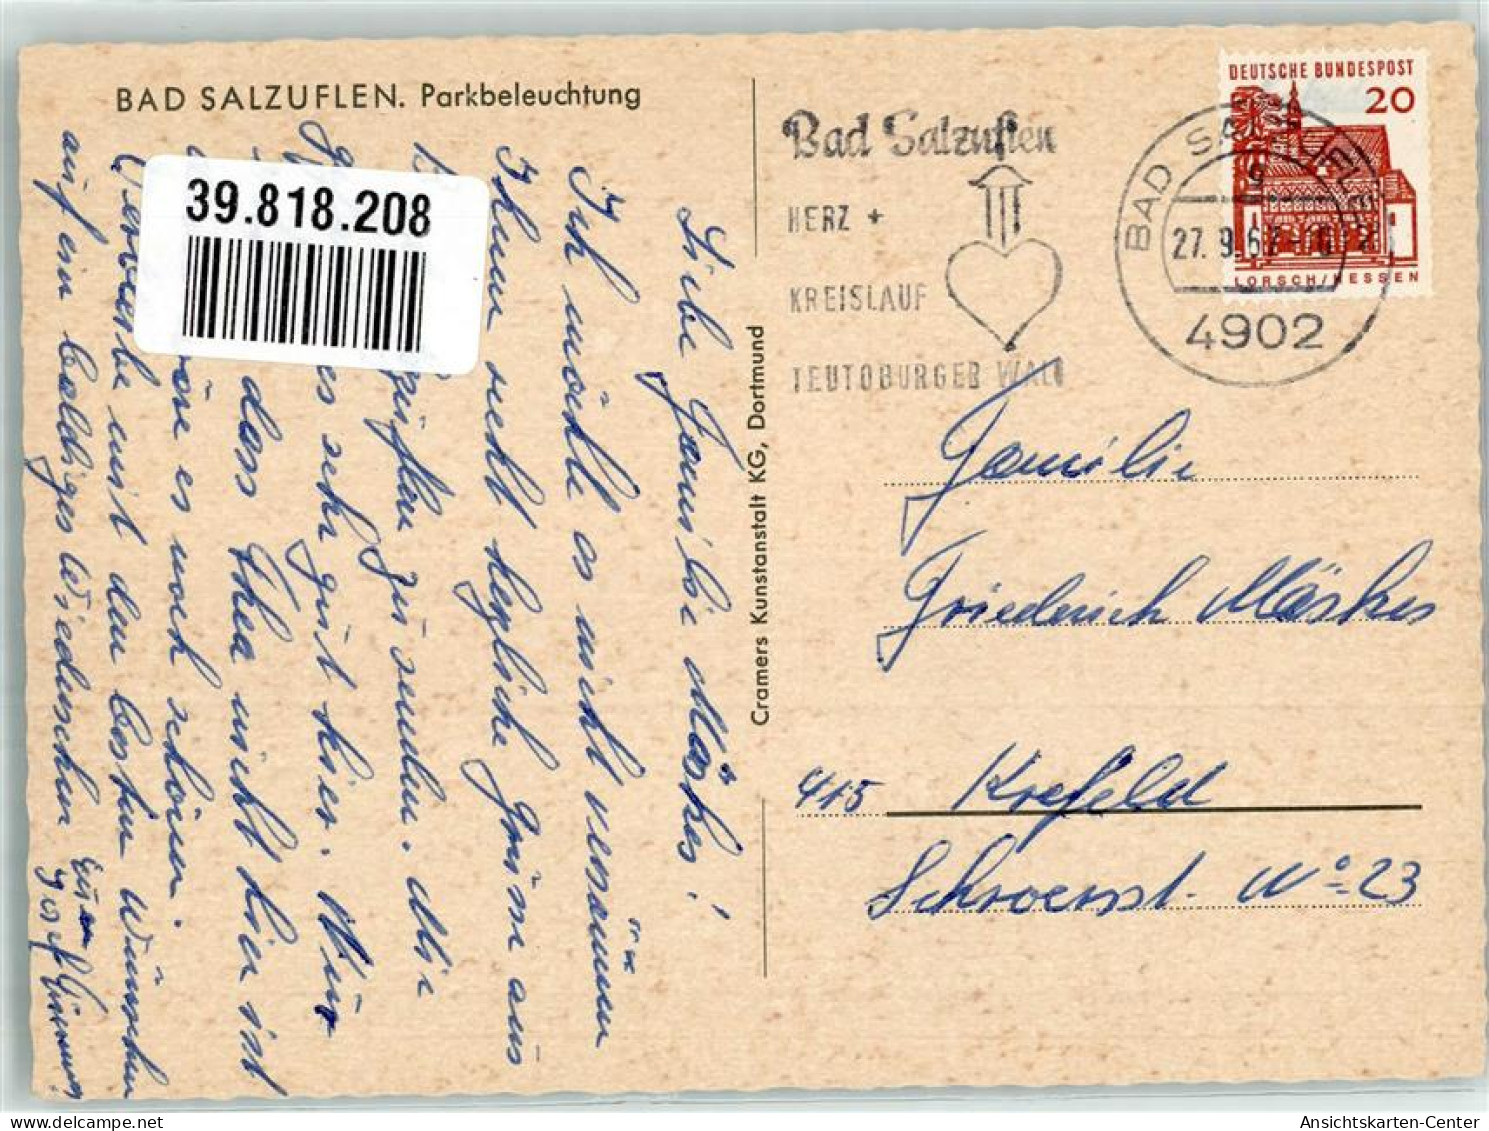 BAD SALZUFLEN. Parkbeleuchtung
39.818.208
Liebe Familie Mäskes!
Ich möchte es nicht versäumen
Ihnen recht herzliche Grüsse aus
zu senden. Mir
es sehr gut hier. Nur
dass Thea nicht hier ist
wäre es noch schöner.
verbleibe mit den besten Wünschen
auf ein baldiges Wiedersehen
Josef
Cramers Kunstanstalt KG, Dortmund
Bad Salzuflen
HERZ +
KREISLAUF
TEUTOBURGER WALD
DEUTSCHE BUNDESPOST
20
LORSCH/HESSEN
BAD SALZUFLEN
27. 9. 67
4902
Familie
Friederich Mäskes
415 Krefeld
Schroerst. No 23
Ansichtskarten-Center